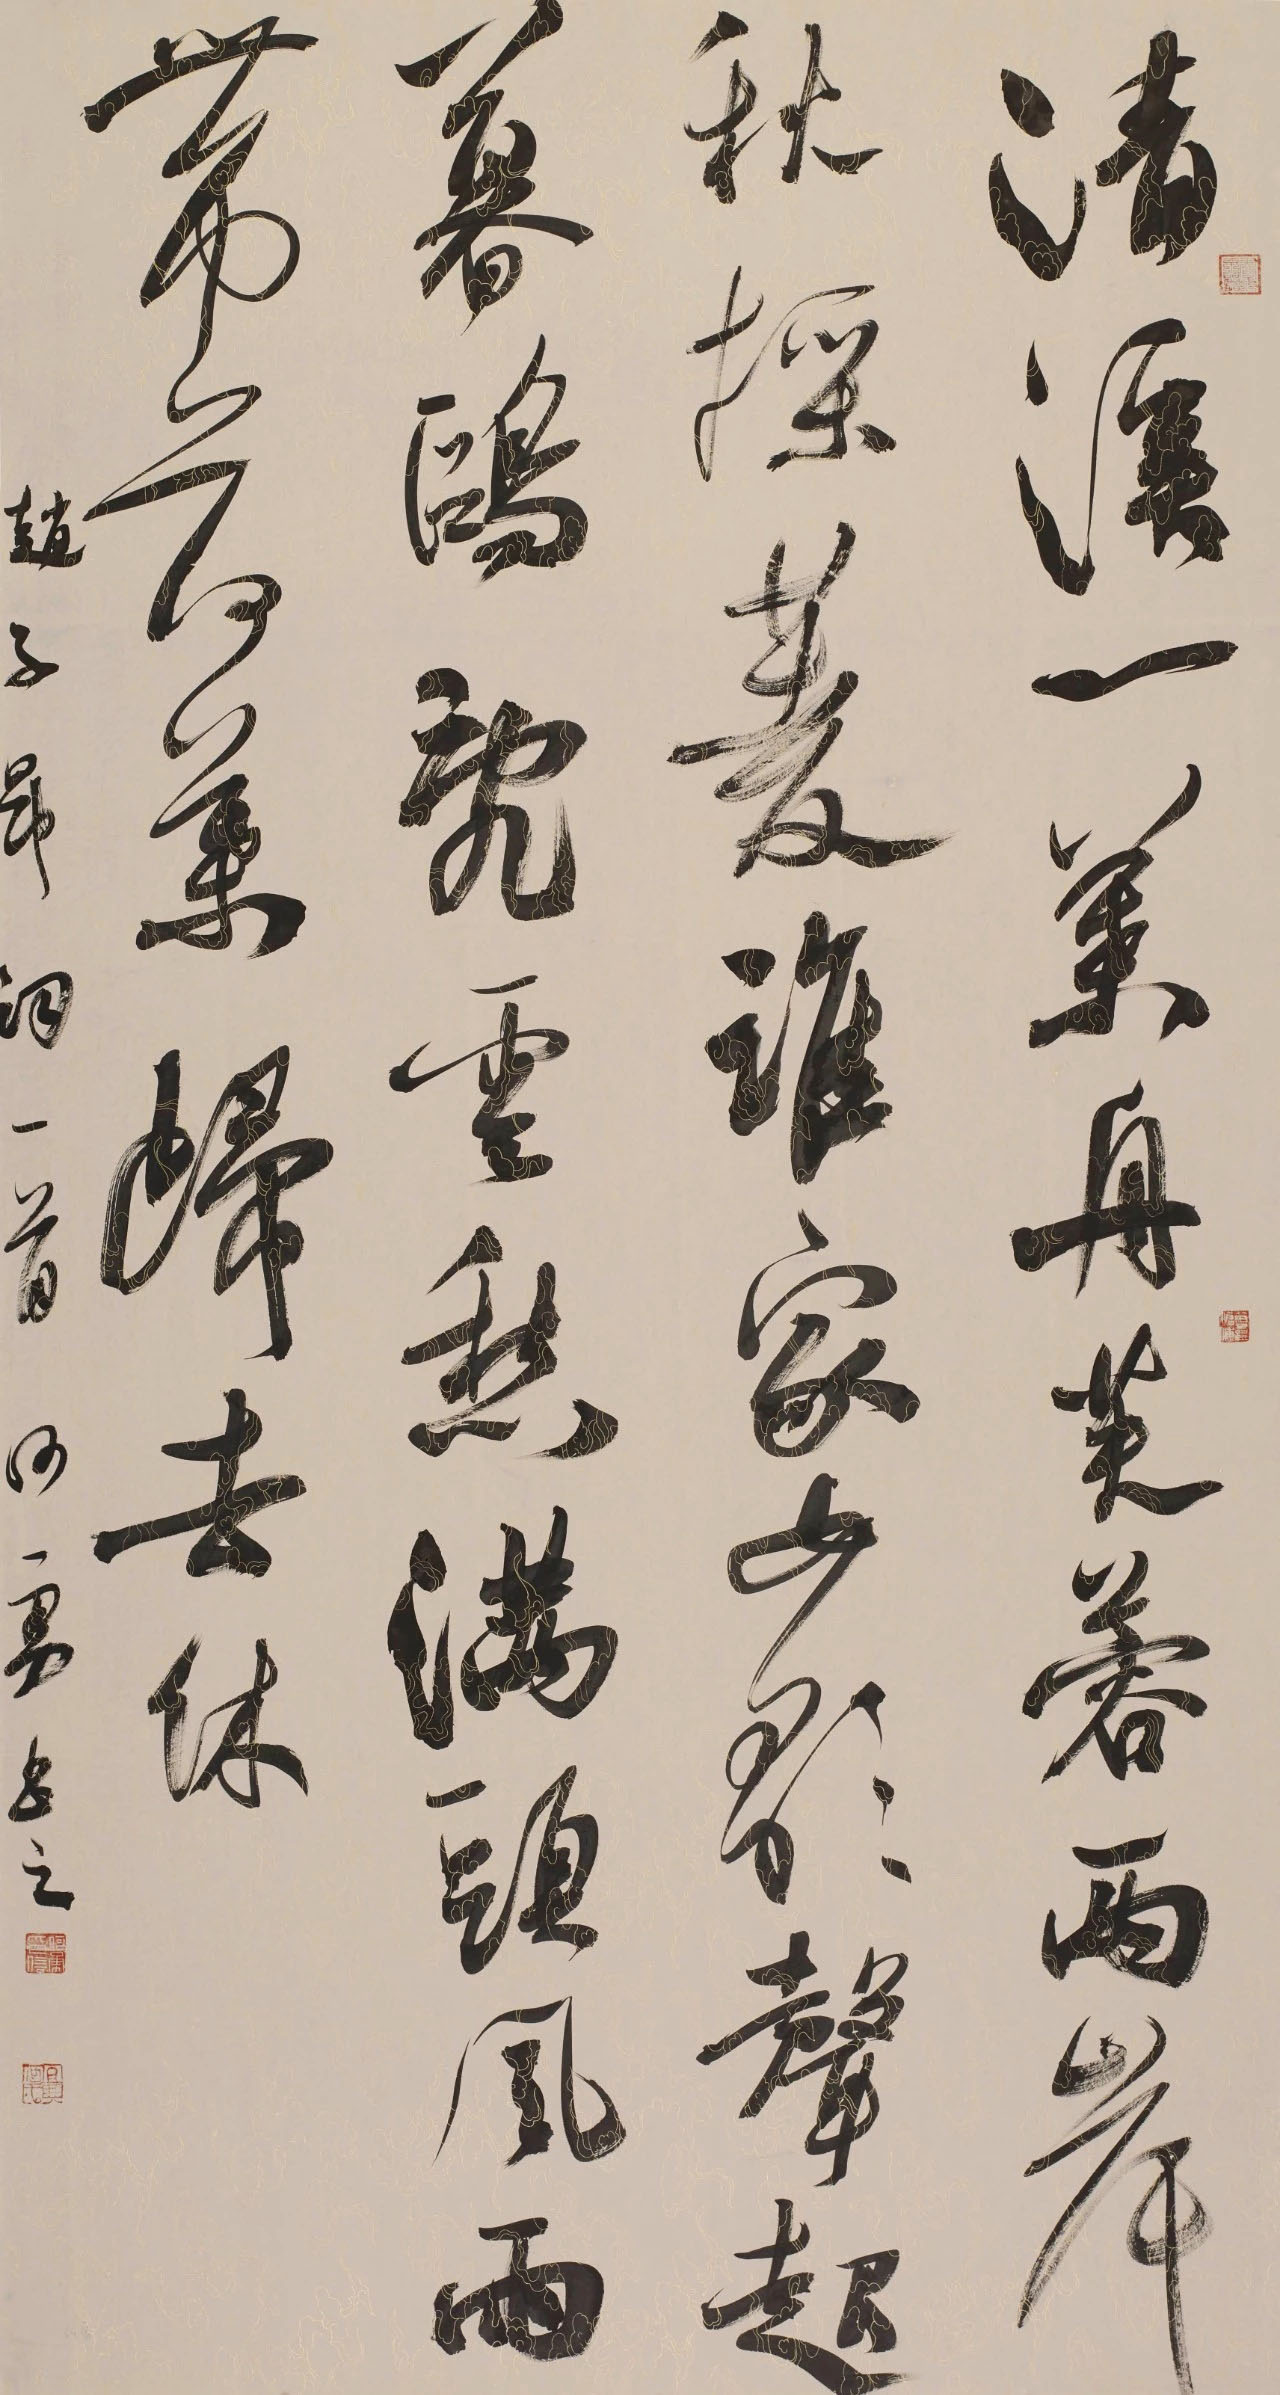 清溪一葉舟芙蓉兩岸
秋採菱誰家女歌聲起
暮鷗亂雲愁滿頭風雨
帶荷葉歸去休
趙子昂詞一首 何勇書之